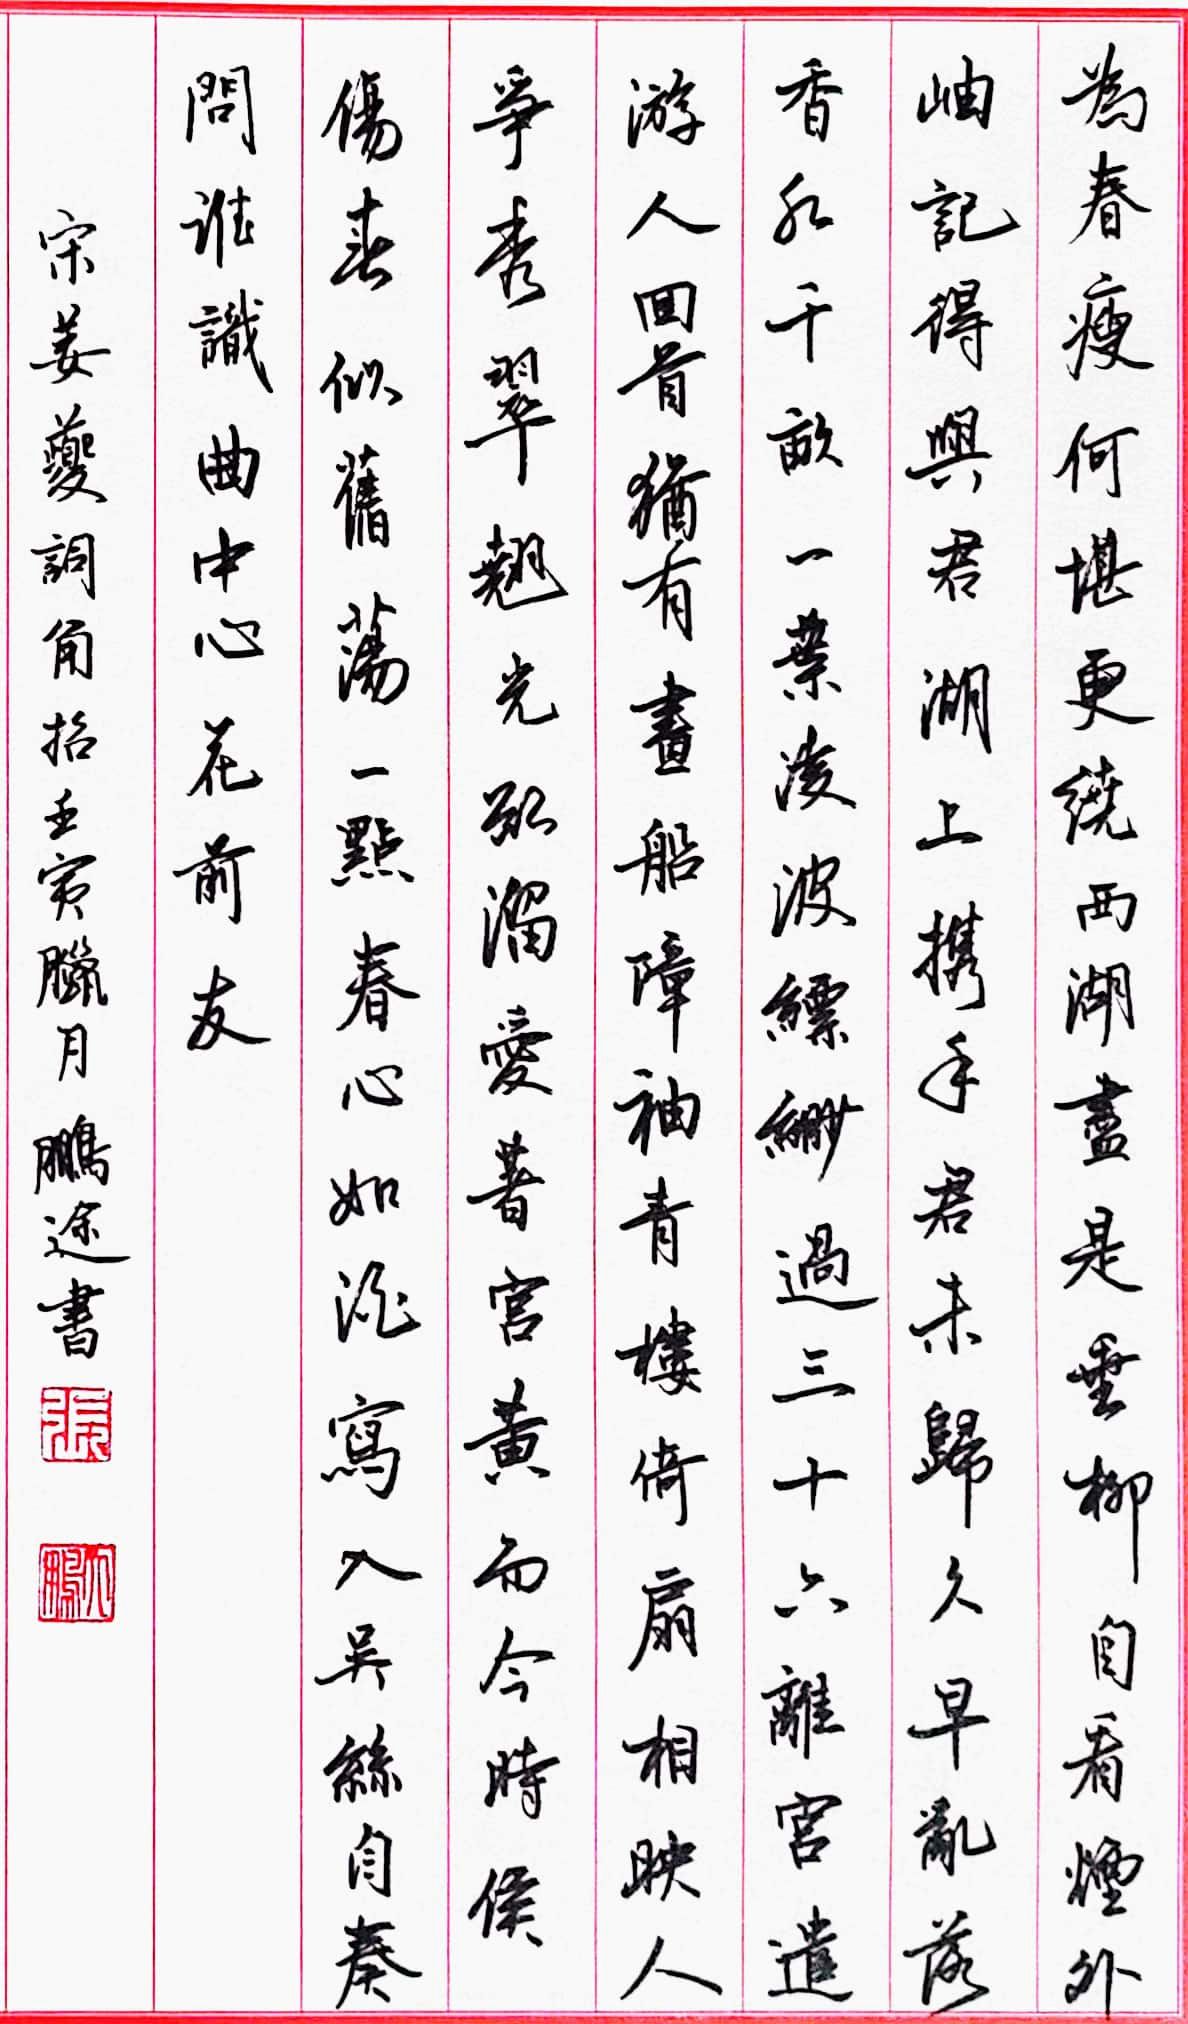 為春瘦何堪更繞西湖盡是垂柳自看煙外
岫記得與君湖上攜手君未歸久早亂落
香紅千畝一葉凌波縹緲過三十六離宮遣
游人回首猶有畫船障袖青樓倚扇相映人
爭秀翠翹光欲溜愛著宮黃而今時候
傷春似舊蕩一點春心如酒寫入吳絲自奏
問誰識曲中心花前友
宋姜夔詞角招壬寅臘月鵬途書
張